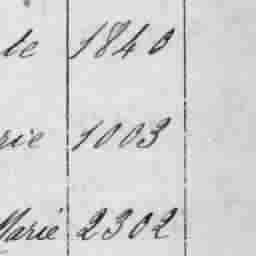 le 1840
rie 1003
Marie 2302